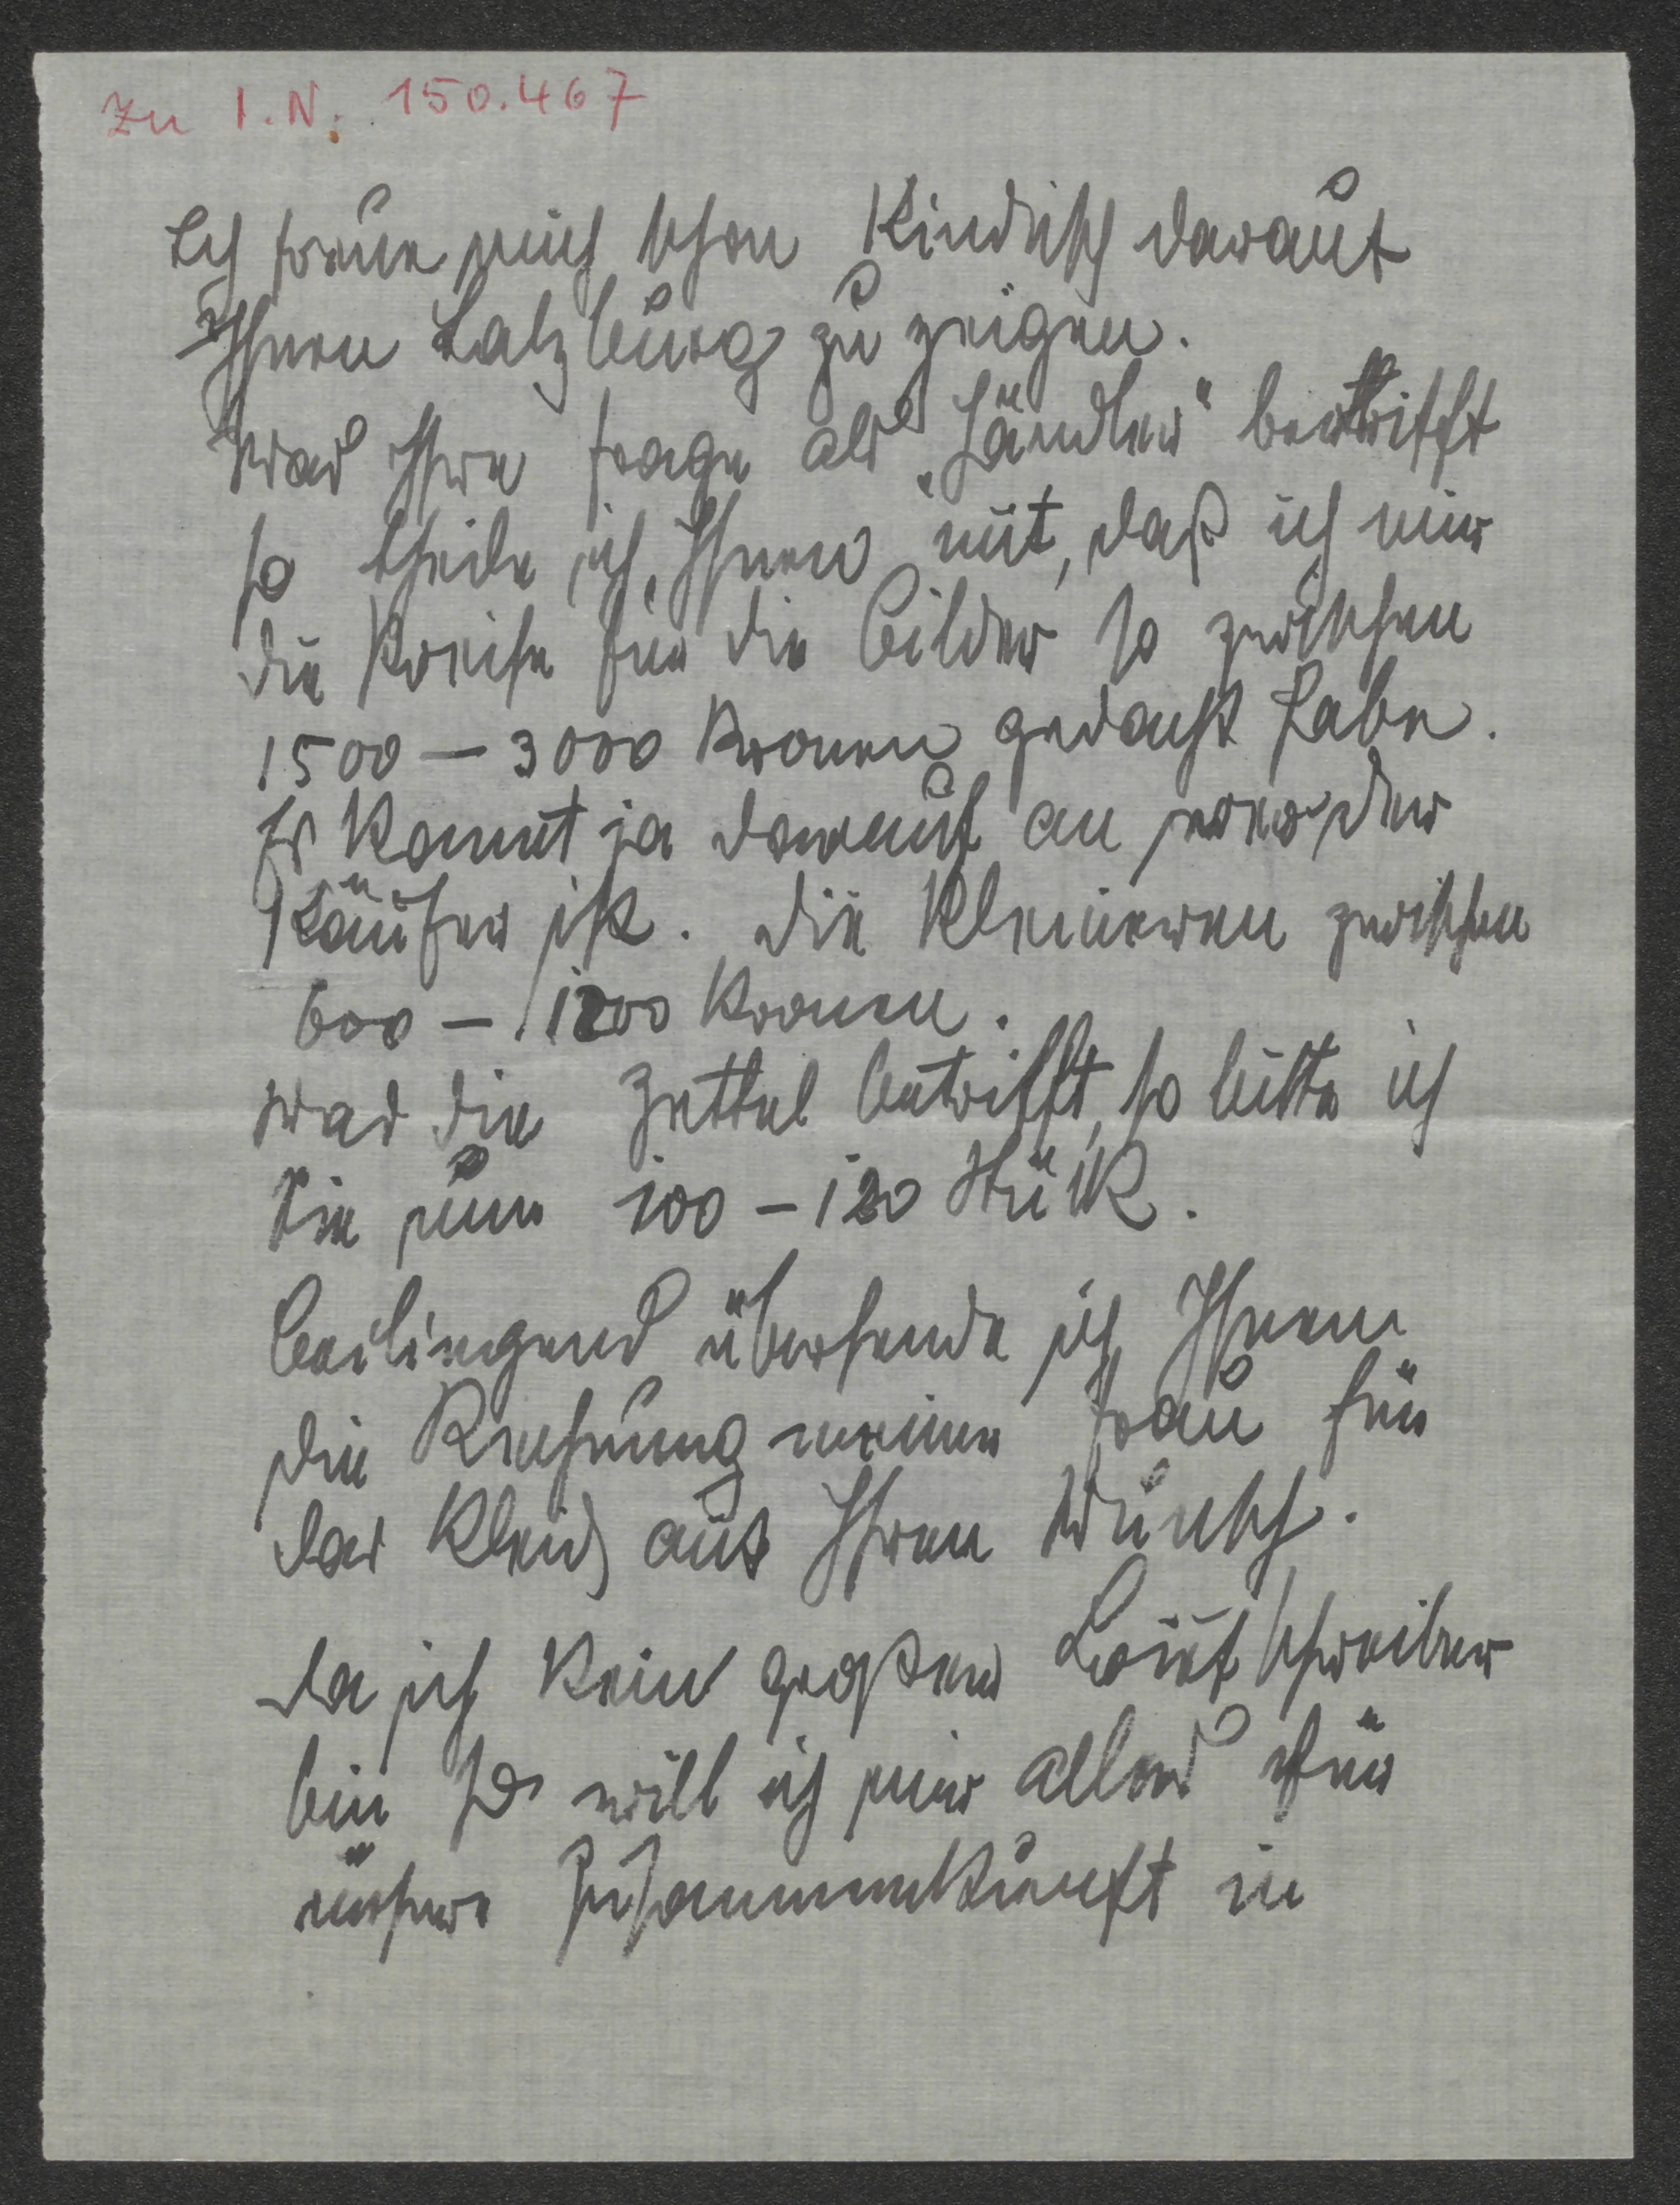 Zu I.N. 150.467
Ich freue mich schon kindisch darauf
Ihnen Salzburg zu zeigen.
Was Ihre Frage als „Händler" betrifft
so theile ich Ihnen mit, daß ich mir
die Preise für die Bilder so zwischen
1500 — 3000 Kronen gedacht habe.
Es kommt ja darauf an wer der
Käufer ist. Die kleineren zwischen
600 — 1200 Kronen.
Was die Zettel betrifft, so bitte ich
Sie um 100 — 120 Stück.
Beiliegend übersende ich Ihnen
die Rechnung meiner Frau für
das Kleid auf Ihren Wunsch.
Da ich kein großer Briefschreiber
bin so will ich mir alles für
unsere Zusammenkunft in